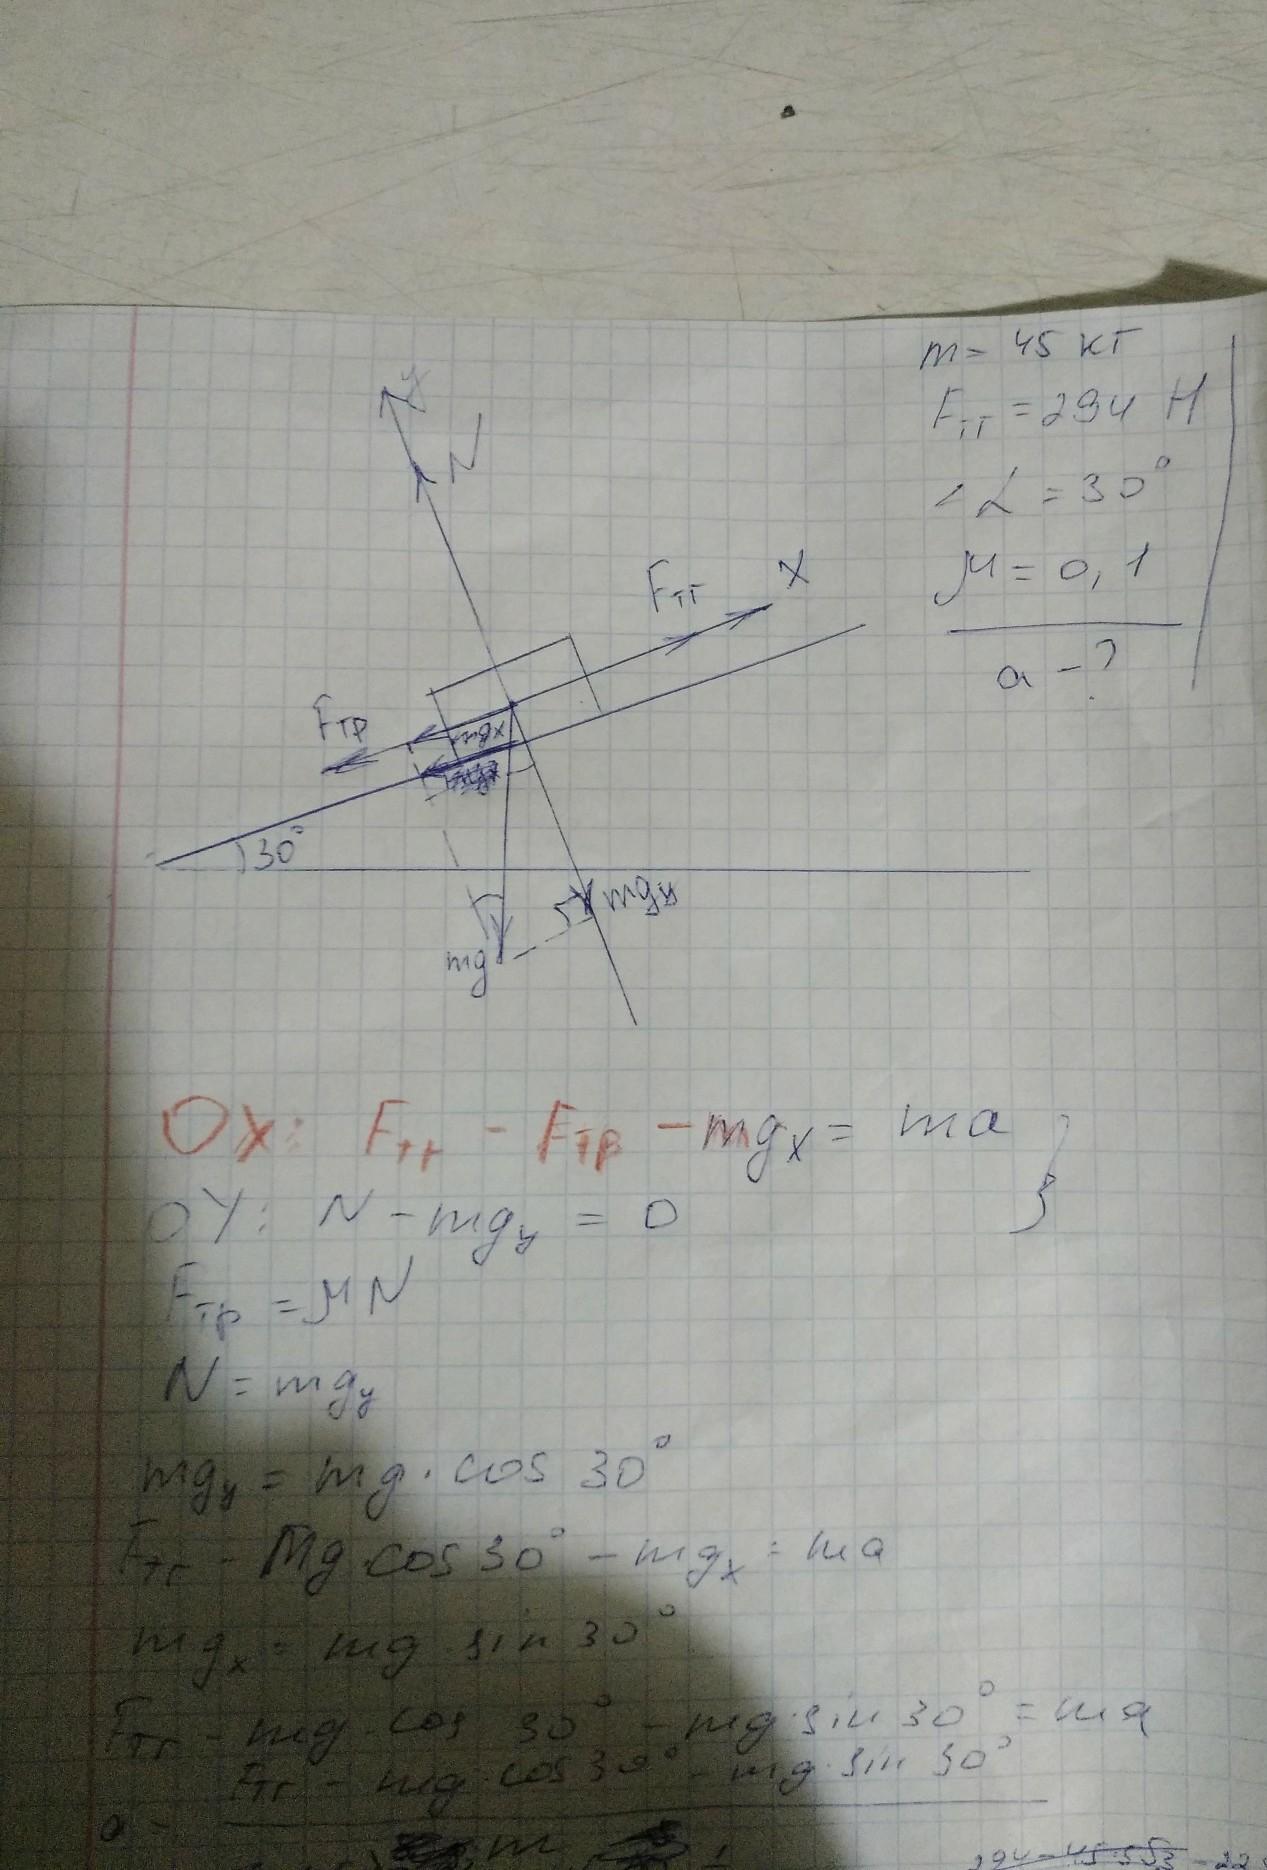 m = 45 кг
Fтг = 294 Н
∠ α = 30°
μ = 0,1
a - ?
y
N
Fтг
X
Fтр
mgx
30°
mgy
mg
OX: Fтг - Fтр - mgx = ma
OY: N - mgy = 0
Fтр = μN
N = mgy
mgy = mg · cos 30°
Fтг - Mg · cos 30° - mgx = ma
mgx = mg · sin 30°
Fтг - mg · cos 30° - mg · sin 30° = ma
Fтг - mg · cos 30° - mg · sin 30°
a =
m